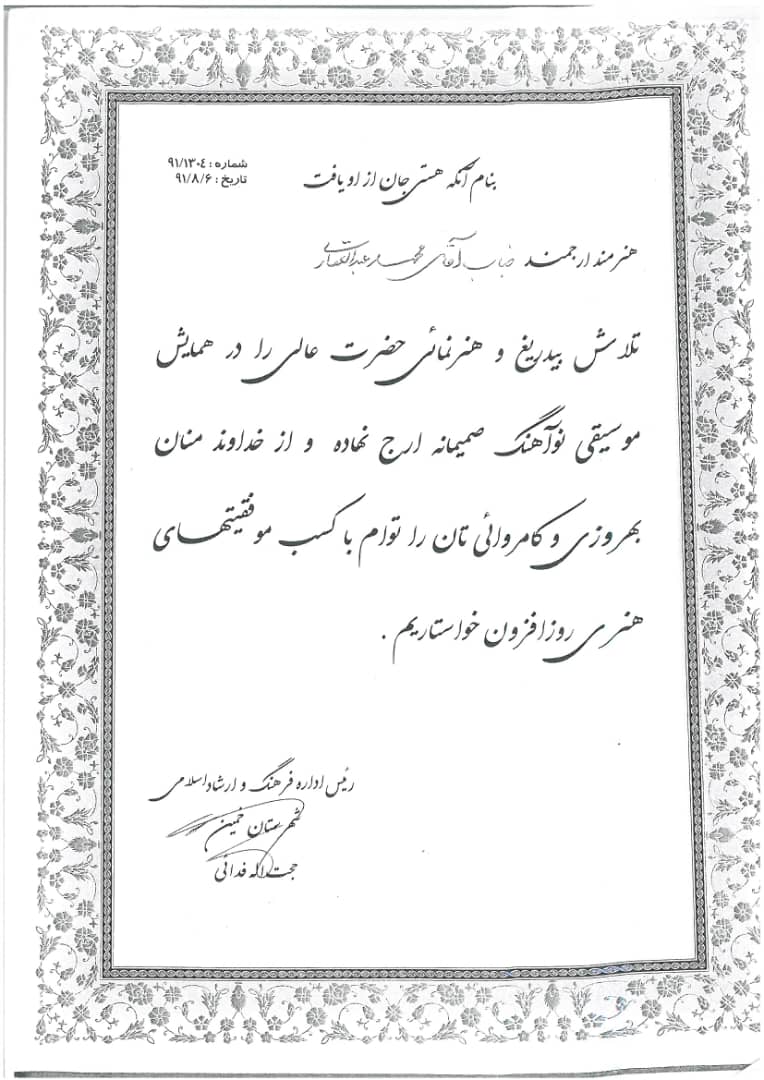 بنام آنکه هستی جان از او یافت
شماره : ۹۱/۱۳۰۴
تاریخ : ۹۱/۸/۶
هنرمند ارجمند جناب آقای
تلاش بیدریغ و هنرنمائی حضرت عالی را در همایش
موسیقی نوآهنگ صمیمانه ارج نهاده و از خداوند منان
بهروزی و کامروائی تان را توام با کسب موفقیتهای
هنری روزافزون خواستاریم .
رئیس اداره فرهنگ و ارشاد اسلامی
شهرستان خمین
حجت اله فدائی